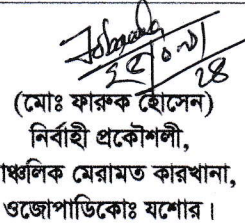 ২৫/০৭/২৪
(মোঃ ফারুক হোসেন)
নির্বাহী প্রকৌশলী,
ঞ্চলিক মেরামত কারখানা,
ওজোপাডিকোঃ যশোর।